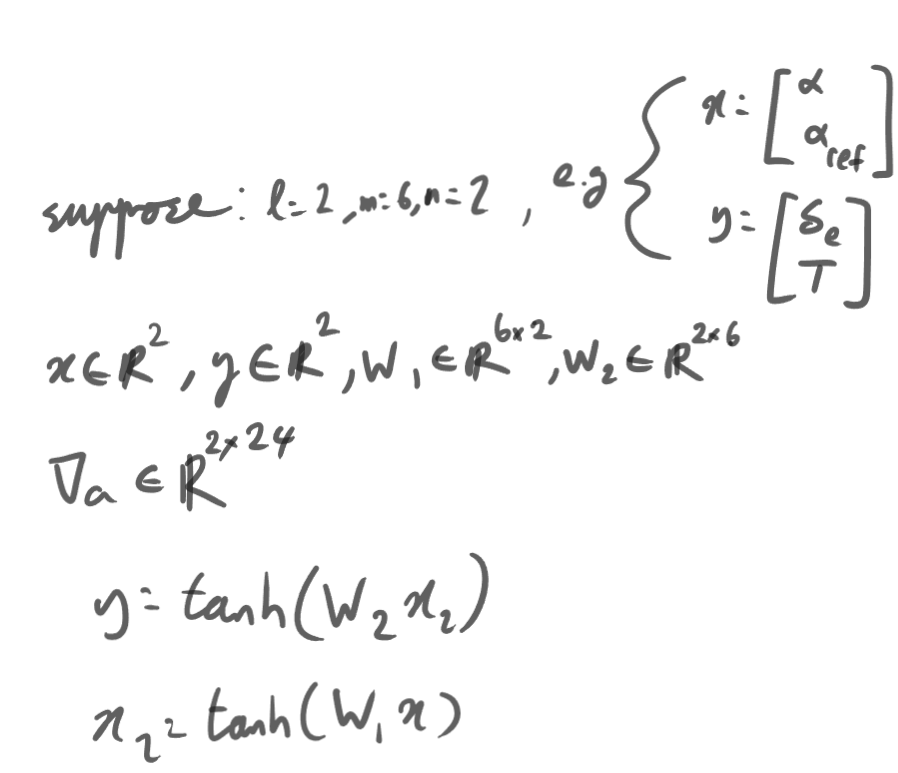 suppose: l=2, m=6, n=2, e.g { x= [α α_ref]
y= [δ_e T]
x∈ℝ^2, y∈ℝ^2, W_1∈ℝ^{6×2}, W_2∈ℝ^{2×6}
∇_a ∈ ℝ^{2×24}
y= tanh(W_2 x_2)
x_2= tanh(W_1 x)